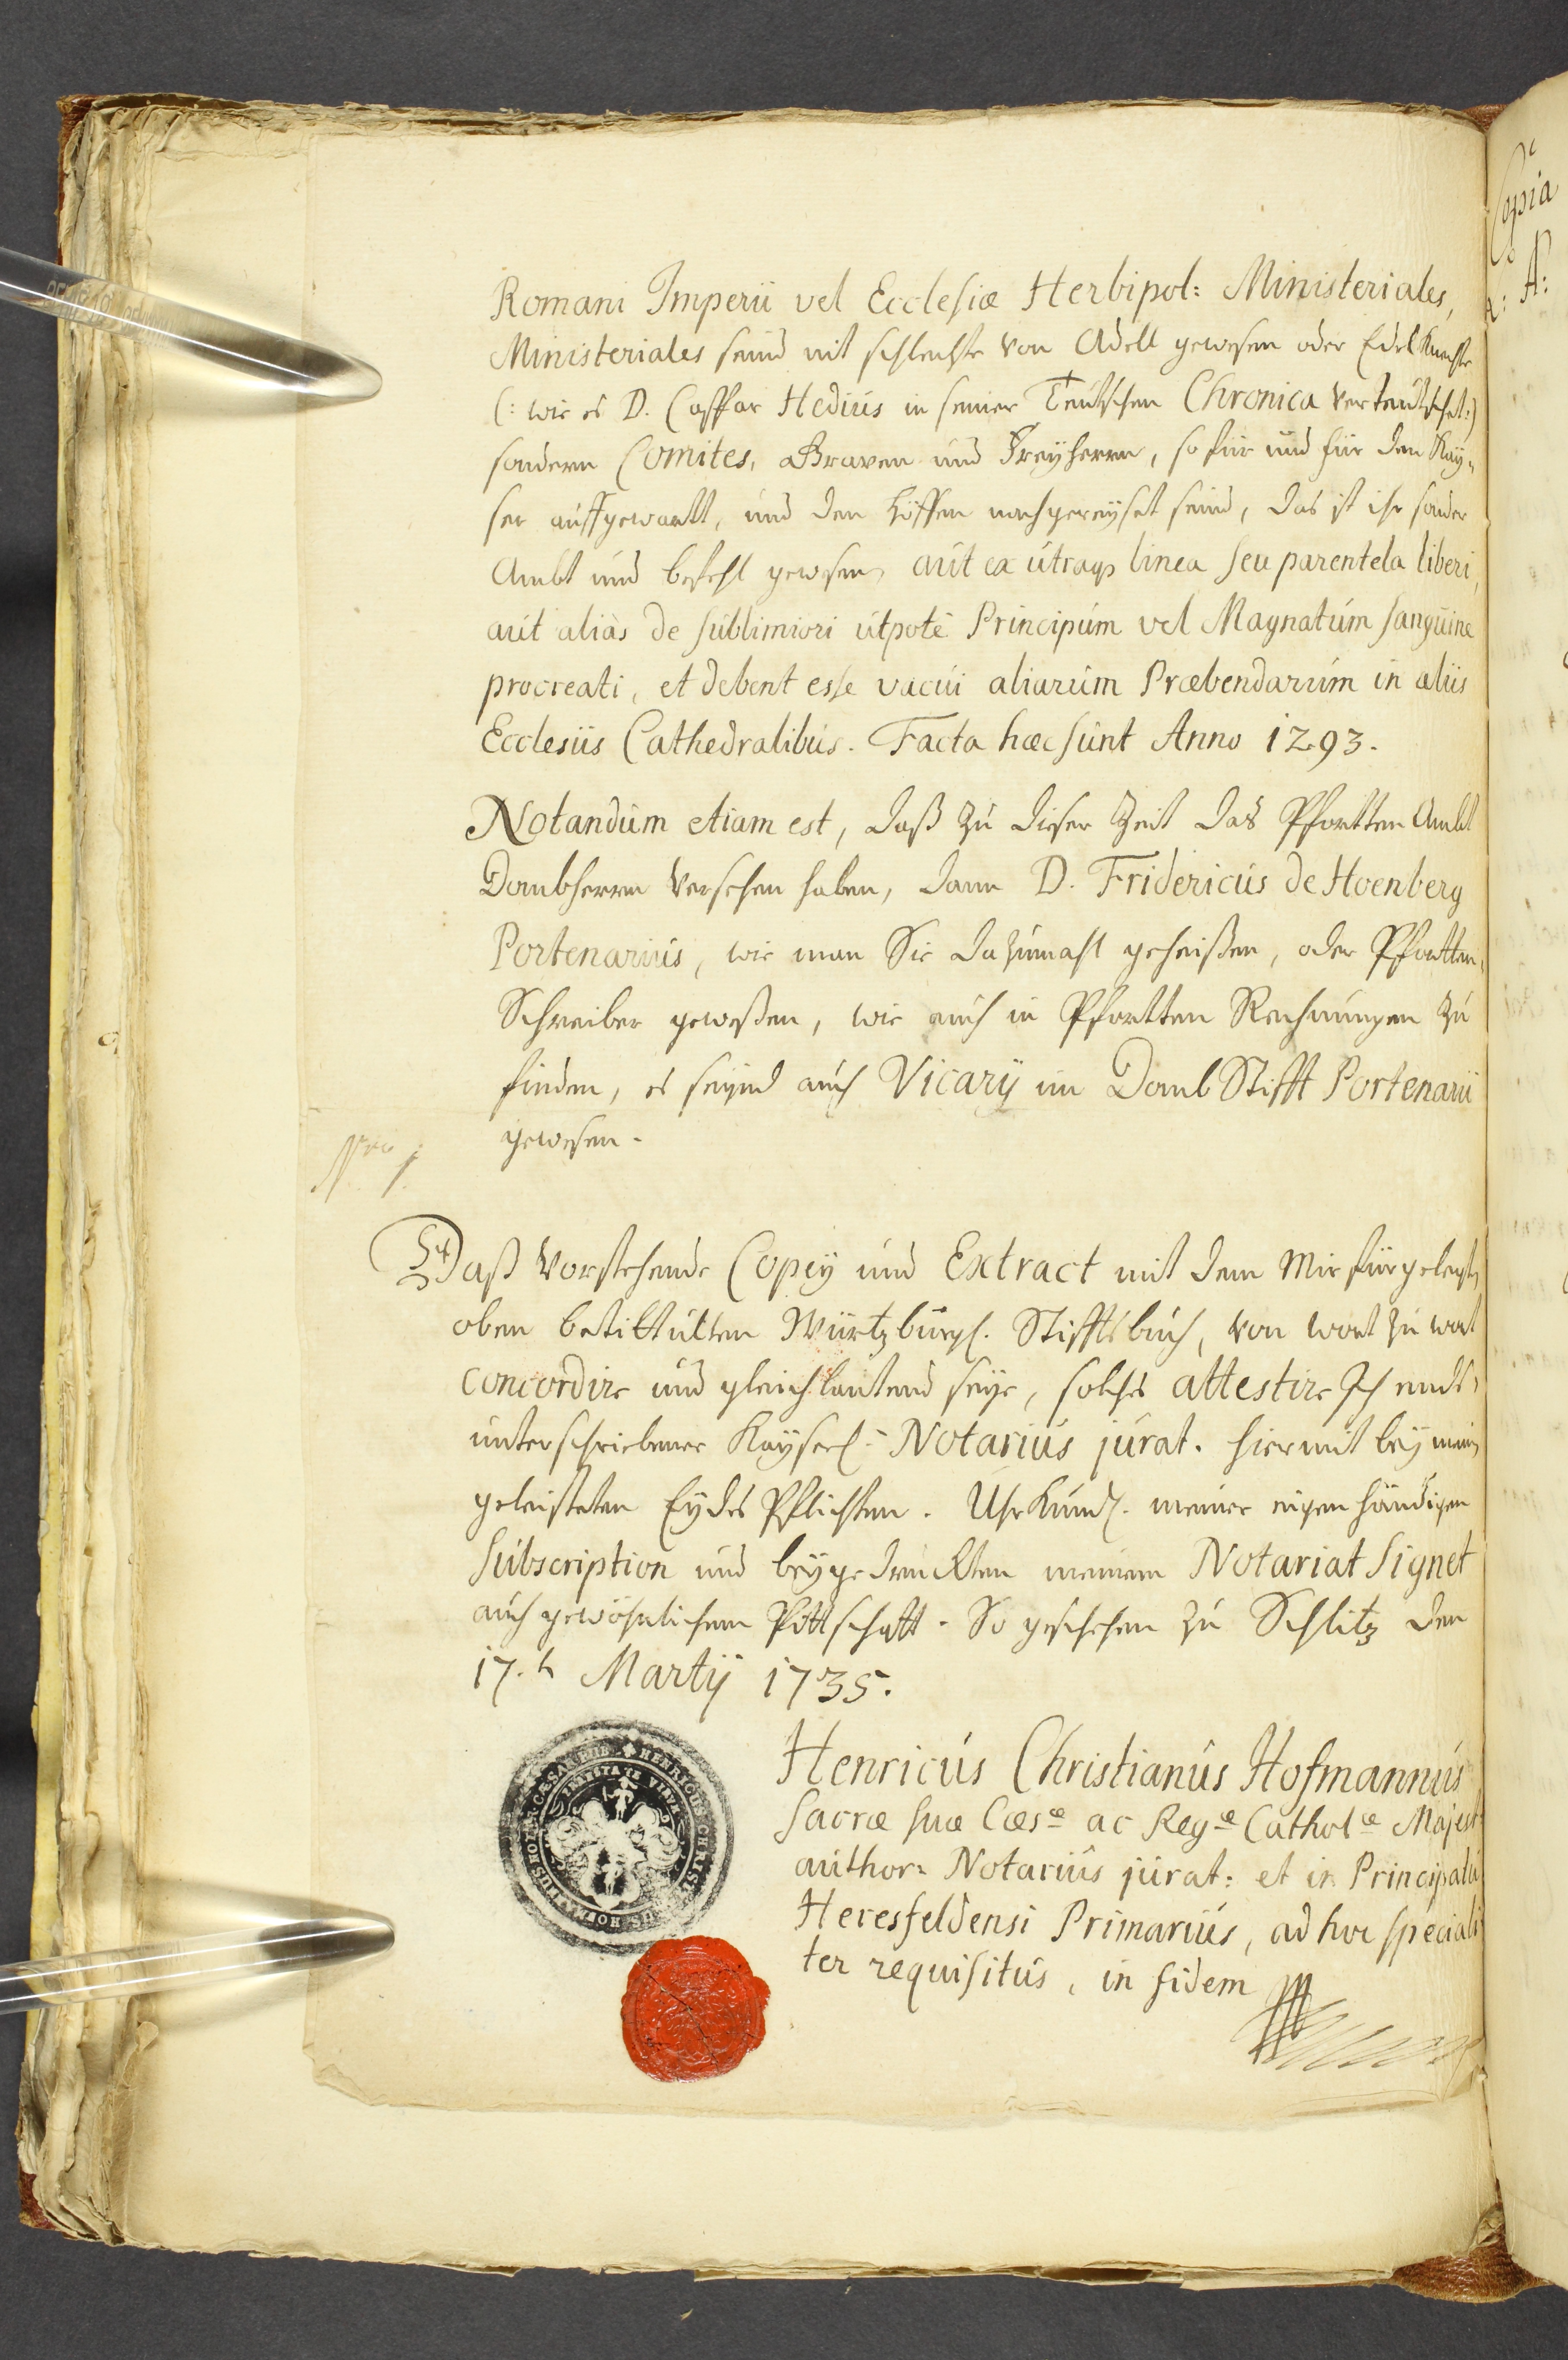 Romani Imperii vel Ecclesiæ Herbipol: Ministeriales,
Ministeriales seind nit schlechte von Adell gewesen oder Edelknechte
(: wie es D. Caspar Hedius in seiner Teutschen Chronica verteutschet:)
sondern Comites, Graven und Freyherrn, so für und für den Kay-
ser auffgewartt, und den Höffen nachgereyset seind, das ist ihr sonder
Ambt und befehl gewesen, aut ex utraq linea seu parentela liberi,
aut aliàs de sublimiori utpotè Principum vel Magnatum sanguine
procreati, et debent esse vacui aliarum Præbendarum in aliis
Ecclesiis Cathedralibus. Facta hæc sunt Anno 1293.
Notandum etiam est, daß zu dieser Zeit das Pfortten Ambt
Dombherrn versehen haben, dann D. Fridericus de Hoenberg
Portenarius, wie man Sie dazumahl geheißen, oder Pfortten-
Schreiber geweßen, wie auch in Pfortten Rechnungen zu
finden, es seynd auch Vicarij im Domb Stifft Portenarii
gewesen.
Daß vorstehende Copey und Extract mit dem mir fürgelegt
oben betittulten Würtzburgl. Stifftsbuch, von wort zu wort
concordire und gleichlautend seye, solches attestire Ich ends-
unterschriebener Kayserl: Notarius jurat. hiermit bey mein
geleisteten Eydes Pflichten. Uhrkundl. meiner eigenhändigen
Subscription und beygedruckten meinem Notariat Signet
auch gewöhnlichem Pittschafft. So geschehen zu Schlitz den
17.t Martij 1735.
Henricus Christianus Hofmannus
Sacræ suæ Cæs.æ ac Reg.æ Cathol.æ Majest:
author: Notarius jurat: et in Principatu
Heresfeldensi Primarius, ad hoc speciali
ter requisitus, in fidem
Copia
A: